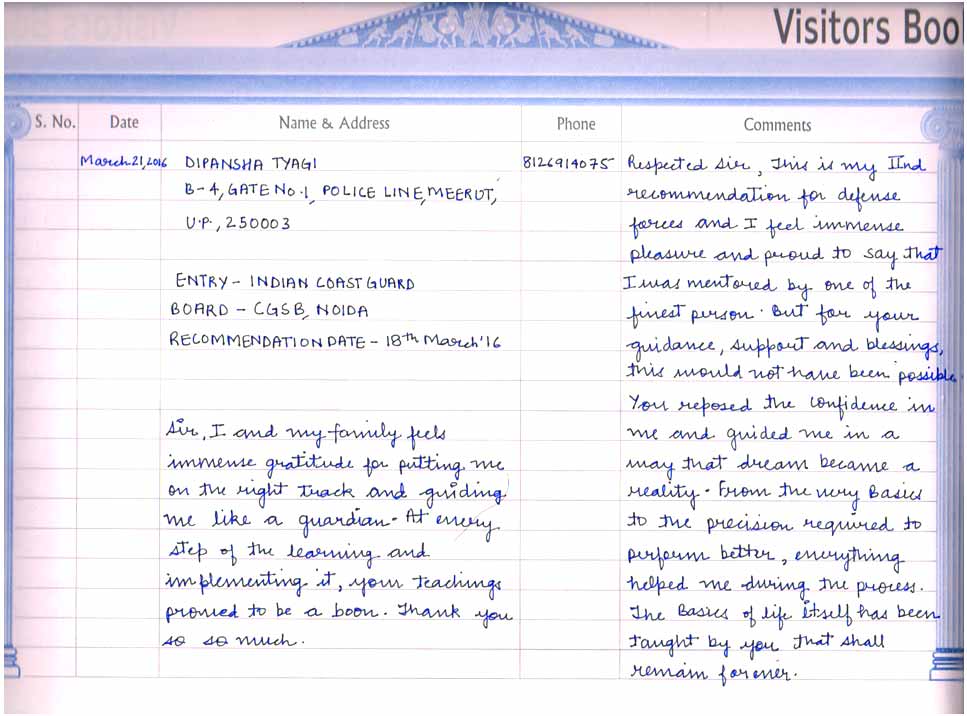 Visitors Boo
S. No. Date Name & Address Phone Comments
March 21, 2016 DIPANSHA TYAGI 8126914075
B-4, GATE No.1, POLICE LINE, MEERUT,
U.P., 250003
ENTRY - INDIAN COAST GUARD
BOARD - CGSB, NOIDA
RECOMMENDATION DATE - 18th March'16
Sir, I and my family feels
immense gratitude for putting me
on the right track and guiding
me like a guardian. At every
step of the learning and
implementing it, your teachings
proved to be a boon. Thank you
so so much.
Respected Sir, This is my IInd
recommendation for defense
forces and I feel immense
pleasure and proud to say that
I was mentored by one of the
finest person. But for your
guidance, support and blessings,
this would not have been possible.
You reposed the confidence in
me and guided me in a
way that dream became a
reality. From the very Basics
to the precision required to
perform better, everything
helped me during the process.
The Basics of life itself has been
taught by you that shall
remain forever.